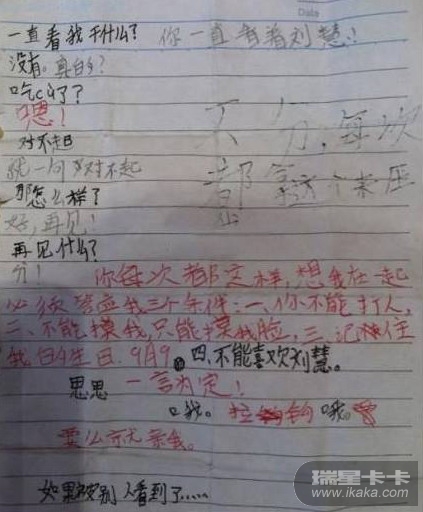 Date
一直看我干什么？你一直看着刘慧！
没有。真自多？
吃cù了？
嗯！
对不起
就一句对不起
那怎么样了
好，再见！
再见什么？
分！
不分，每次
都拿这个来压
你每次都这样，想我在一起
必须答应我三个条件：一、你不能打人，
二、不能摸我，只能摸我脸，三、记住
我日生日.9月9 四、不能喜欢刘慧。
思思 一言为定！
哦。拉钩哦。
要么亦无亲会。
如果被别人看到了.....
瑞星卡卡
www.ikaka.com